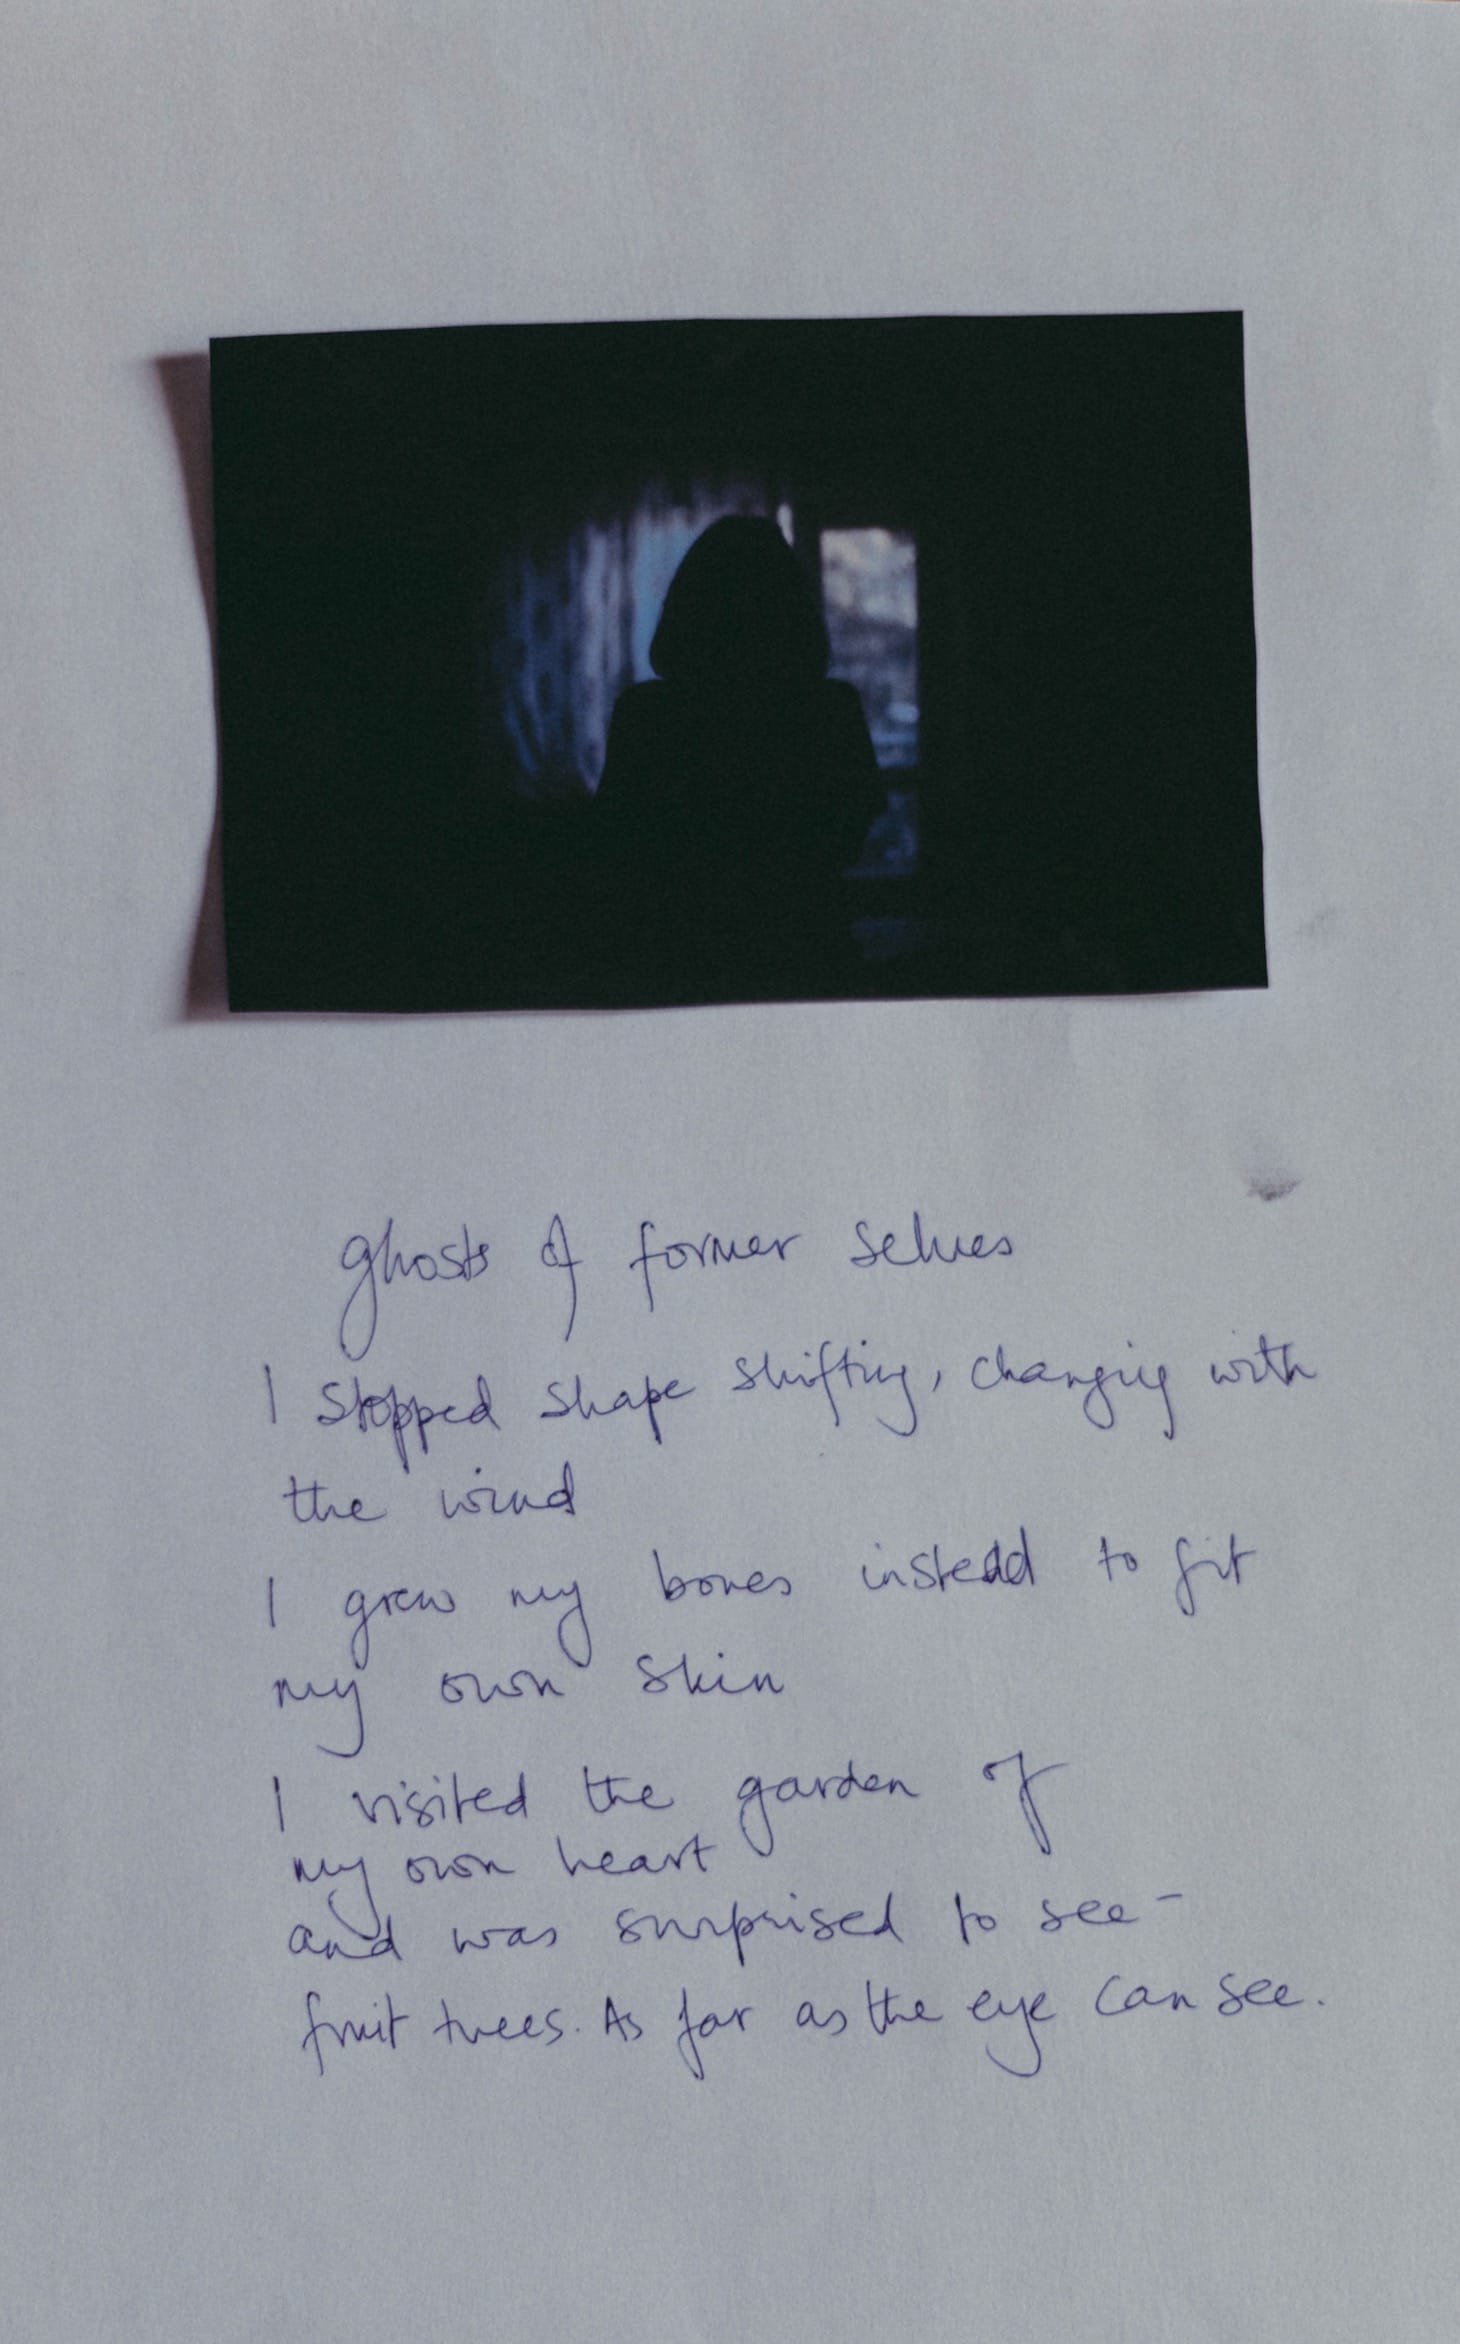 Ghosts of former selves
I stopped shape shifting, changing with
the wind
I grew my bones instead to fit
my own skin
I visited the garden of
my own heart
and was surprised to see -
fruit trees. As far as the eye can see.